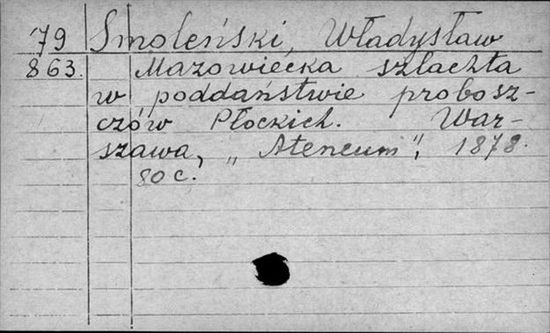 79 Smoleński, Władysław
863. Mazowiecka szlachta
w poddaństwie probosz-
czów Płockich. War-
szawa, „Ateneum", 1878.
80 c.